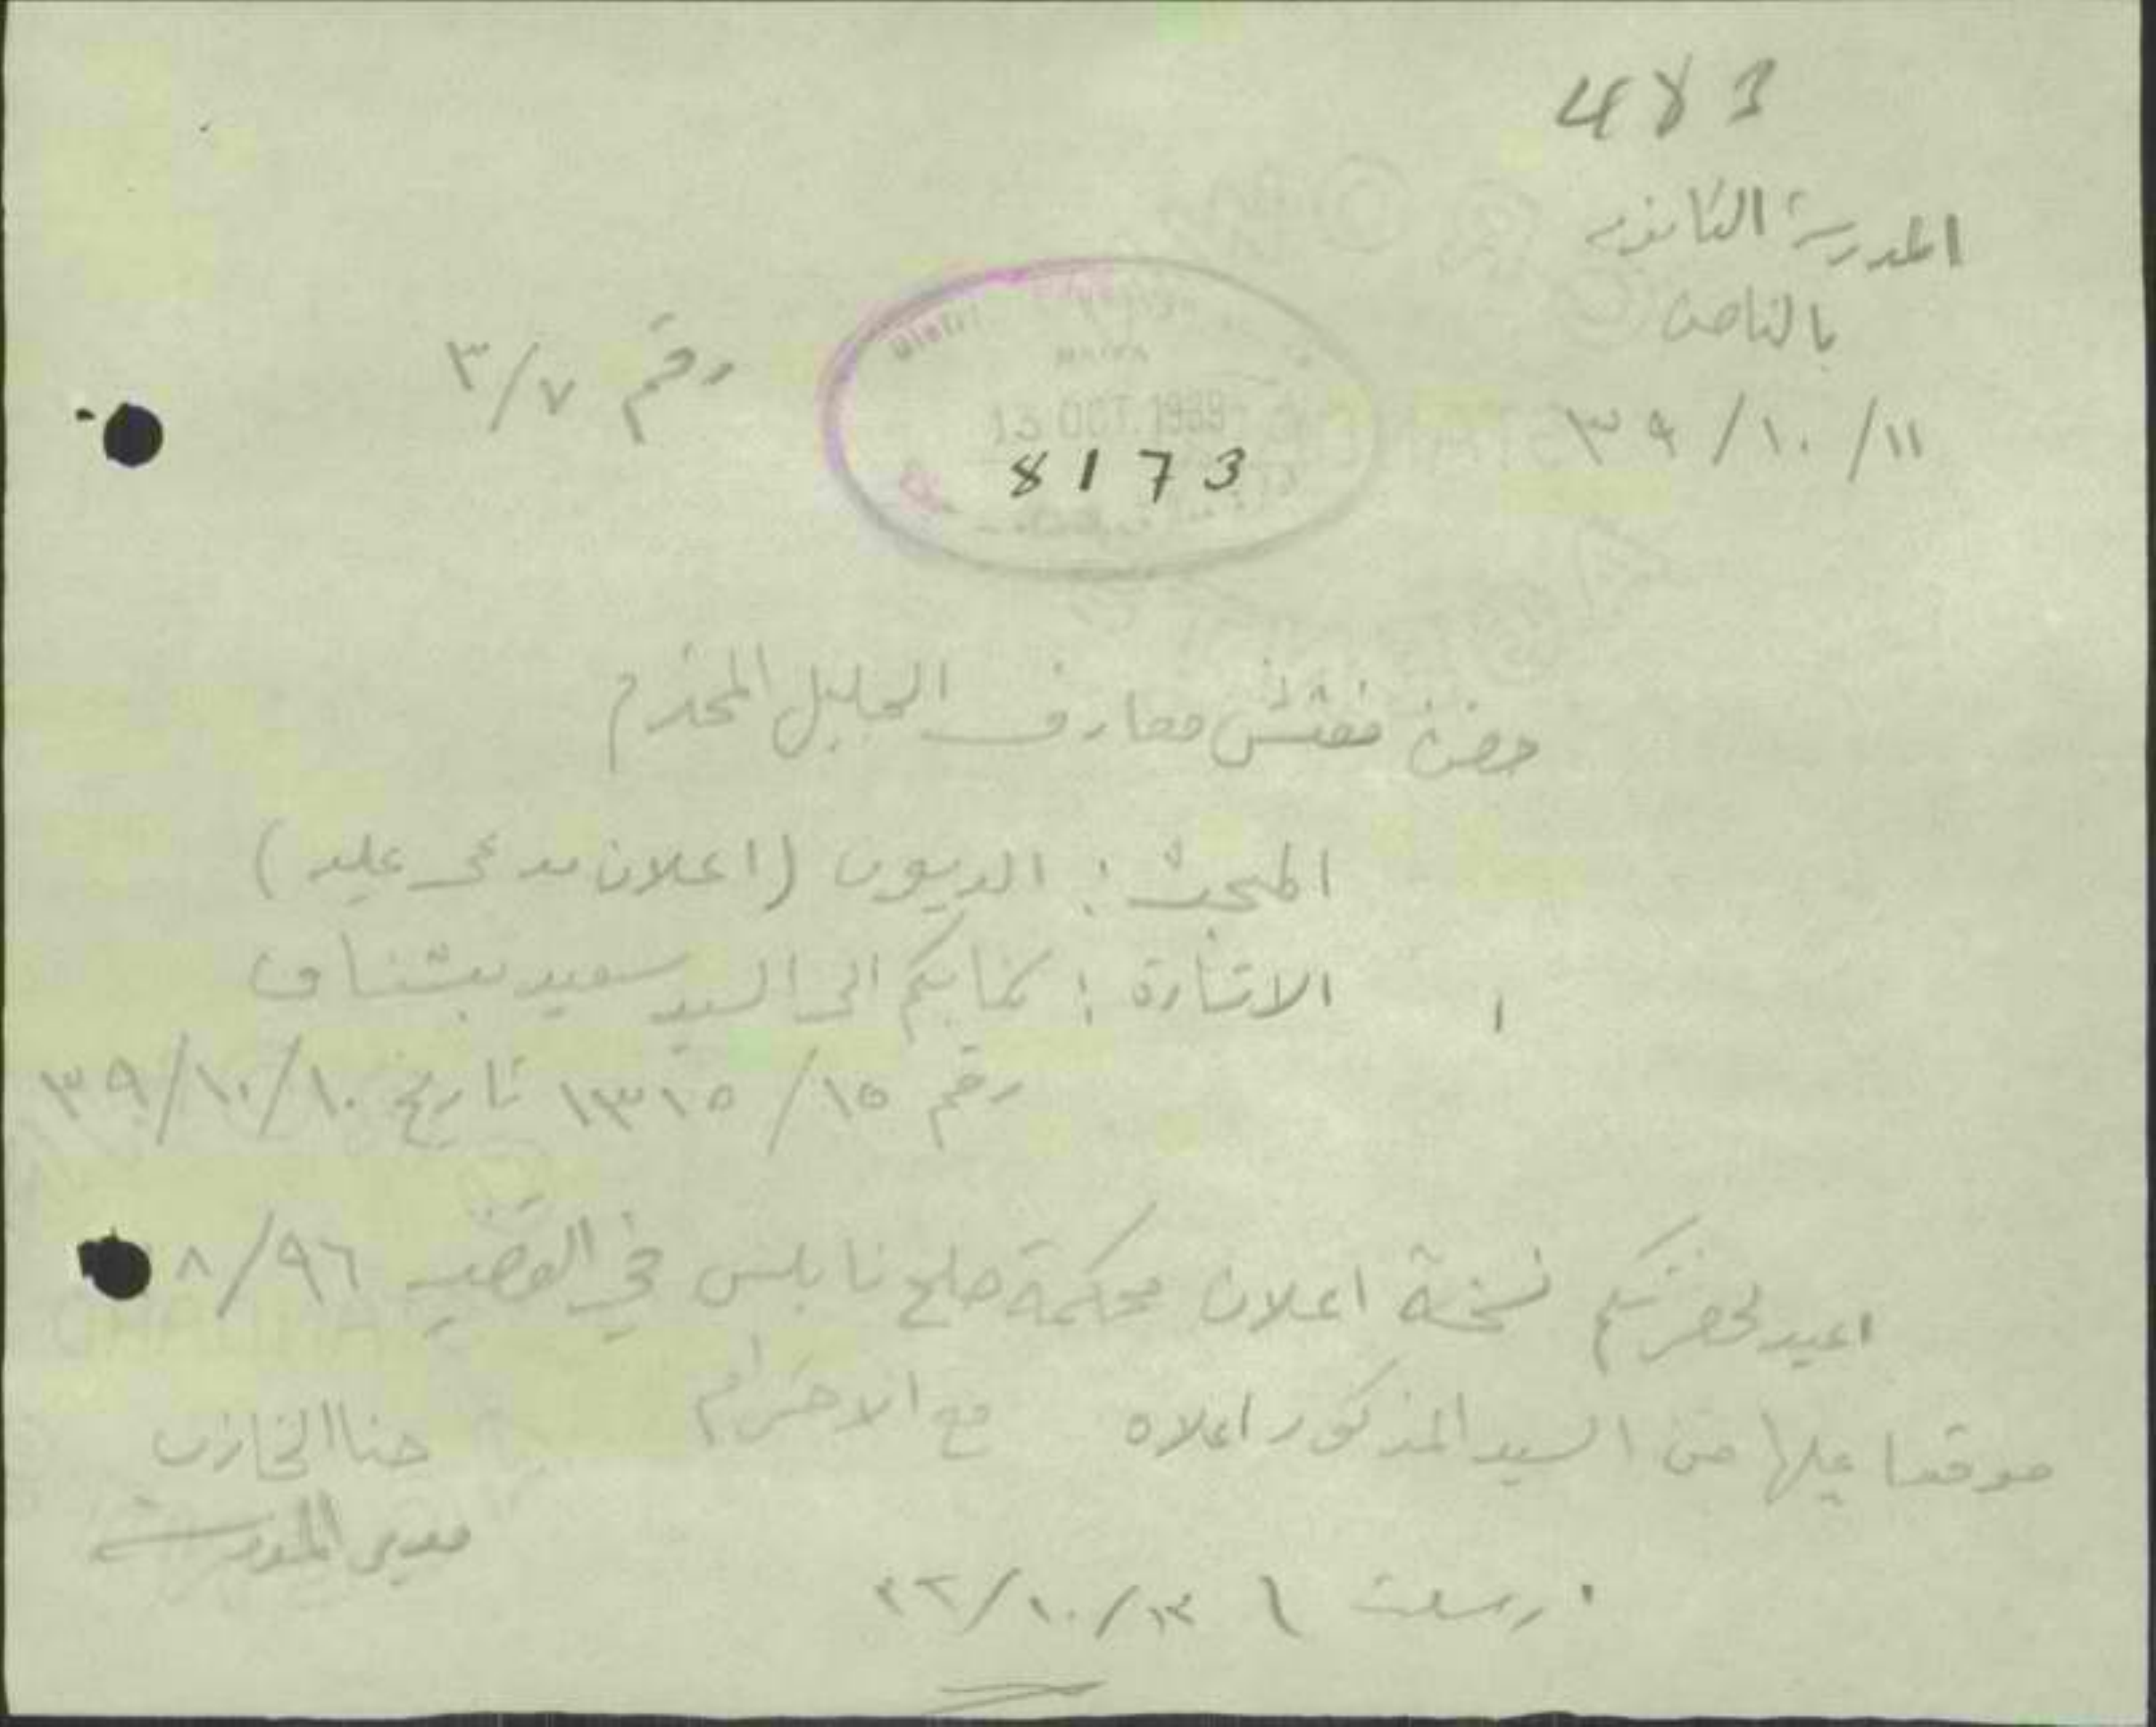 483
المدرسة الثانوية
بالناصرة
١١/١٠/٣٩
رقم ٣/٧
HAIFA
13 OCT. 1939
8173
حضرة مفتش معارف الجليل المحترم
المبحث: الديون (اعلان مدعى عليه)
الاشارة: كتابكم الى السيد سعيد بشناق
رقم ١٥/١٣١٥ تاريخ ١٠/١٠/٣٩
اعيد لحضرتكم نسخة اعلان محكمة صلح نابلس في القضية ٨/٩٦
موقعا عليها من السيد المذكور اعلاه مع الاحترام
حنا الخازن
مدير المدرسة